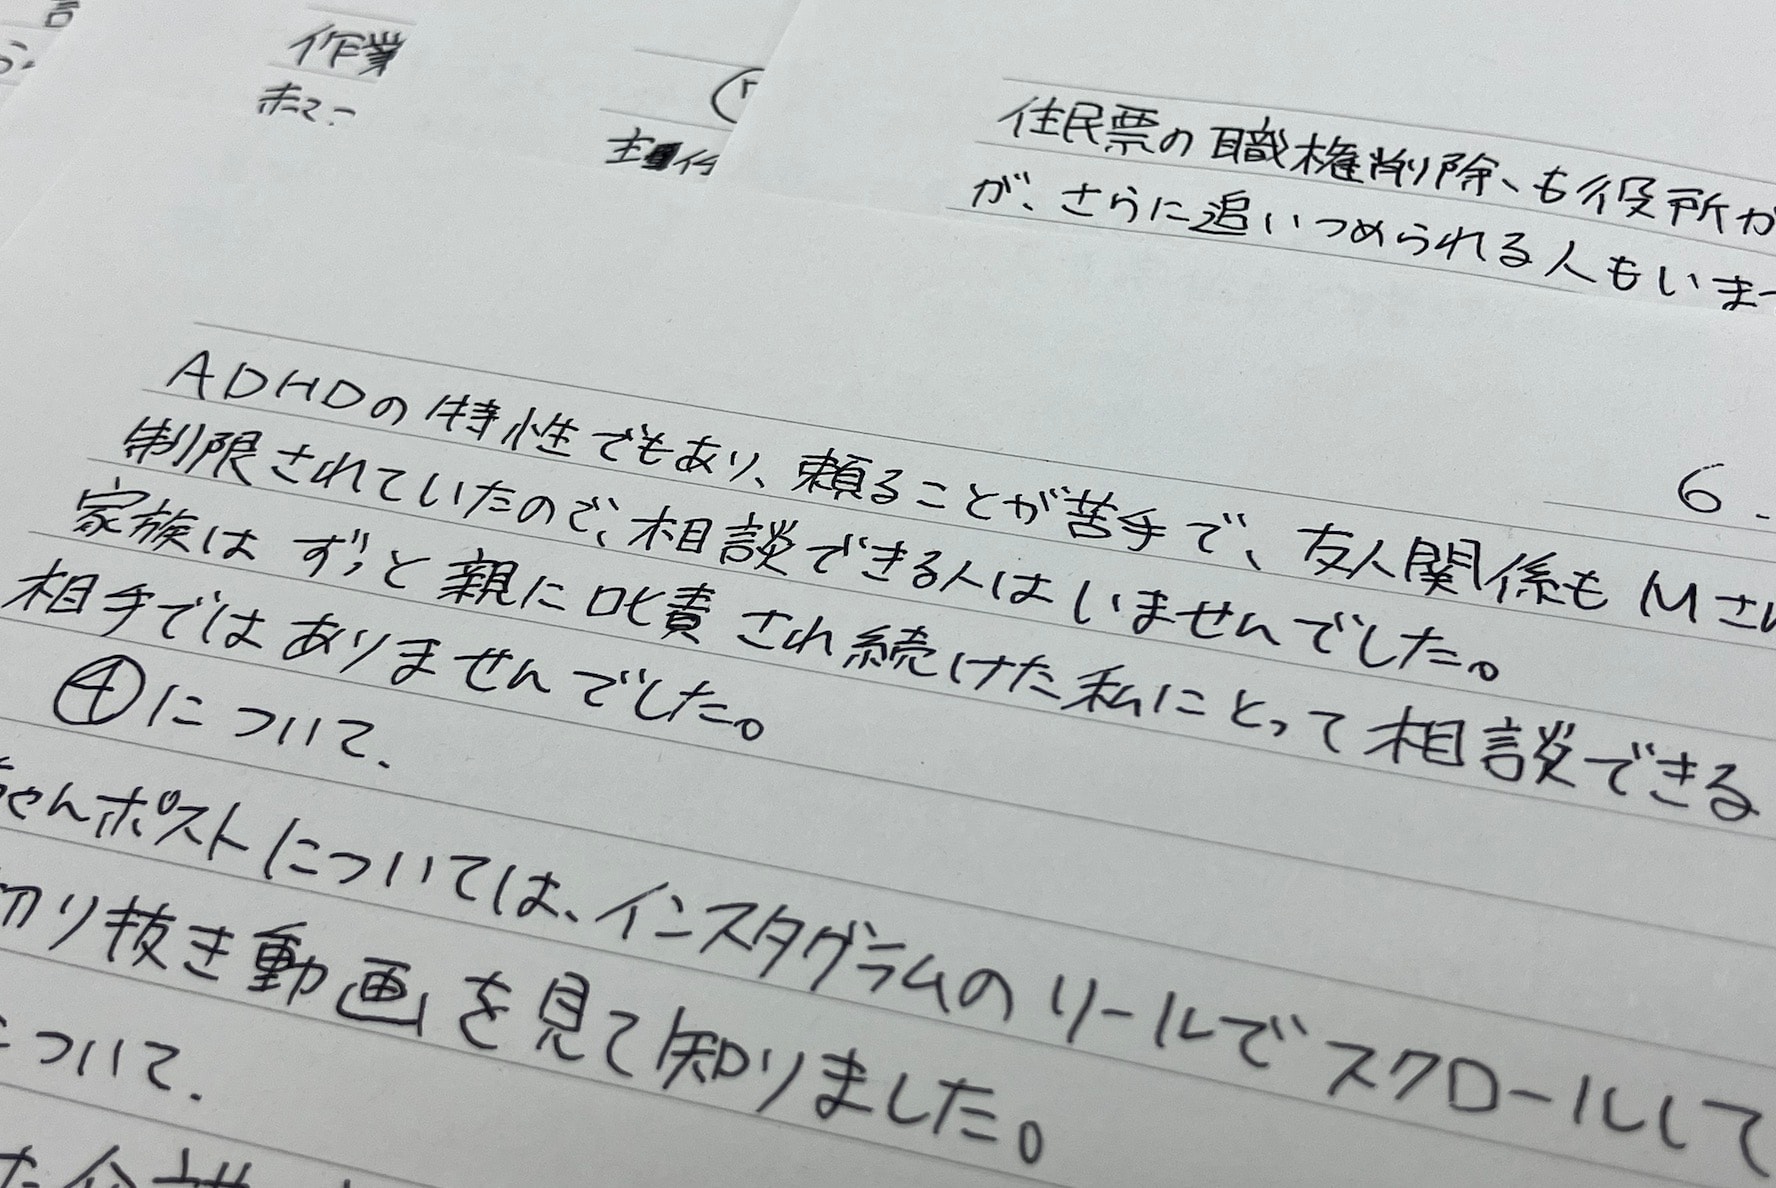 作業
住民票の職権削除、も役所が
が、さらに追いつめられる人もいま
6.
ADHDの特性でもあり、頼ることが苦手で、友人関係もMさん
制限されていたので、相談できる人はいませんでした。
家族はずっと親に叱責され続けた私にとって相談できる
相手ではありませんでした。
④について.
ちゃんポストについては、インスタグラムのリールでスクロールして
切り抜き動画を見て知りました。
ついて.